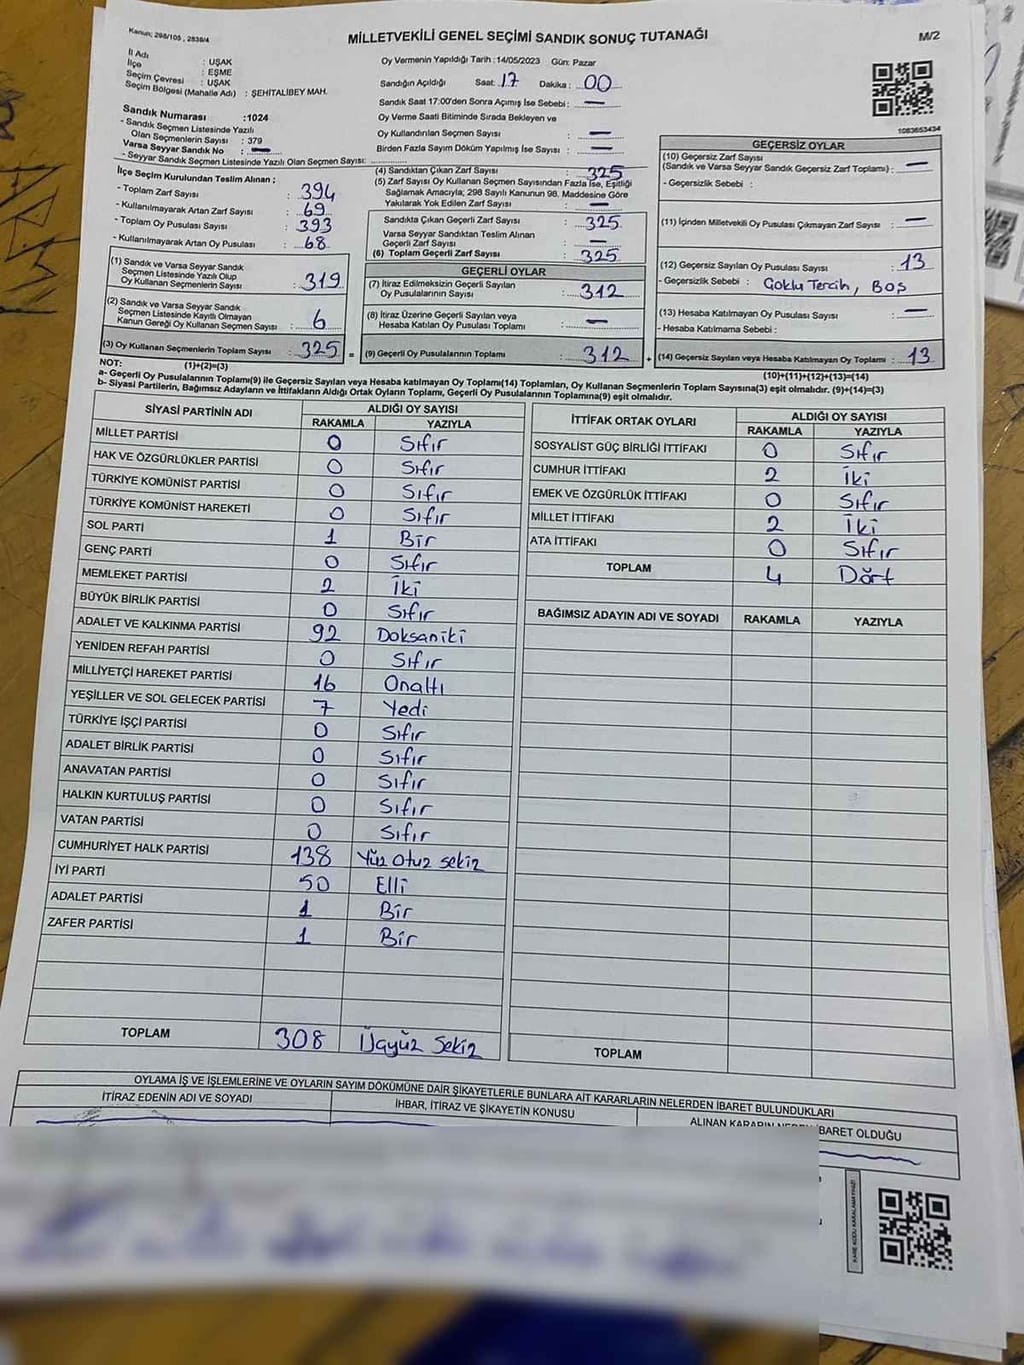 Kanun; 298/105, 2839/4
MİLLETVEKİLİ GENEL SEÇİMİ SANDIK SONUÇ TUTANAĞI
M/2
İl Adı : UŞAK
İlçe : EŞME
Seçim Çevresi : UŞAK
Seçim Bölgesi (Mahalle Adı) : ŞEHİTALİBEY MAH.
Sandık Numarası :1024
- Sandık Seçmen Listesinde Yazılı
Olan Seçmenlerin Sayısı : 379
Varsa Seyyar Sandık No : —
- Seyyar Sandık Seçmen Listesinde Yazılı Olan Seçmen Sayısı:
İlçe Seçim Kurulundan Teslim Alınan ;
- Toplam Zarf Sayısı : 394
- Kullanılmayarak Artan Zarf Sayısı : 69
- Toplam Oy Pusulası Sayısı : 393
- Kullanılmayarak Artan Oy Pusulası : 68
(1) Sandık ve Varsa Seyyar Sandık
Seçmen Listesinde Yazılı Olup
Oy Kullanan Seçmenlerin Sayısı : 319
(2) Sandık ve Varsa Seyyar Sandık
Seçmen Listesinde Kayıtlı Olmayan
Kanun Gereği Oy Kullanan Seçmen Sayısı : 6
(3) Oy Kullanan Seçmenlerin Toplam Sayısı : 325 =
(1)+(2)=(3)
Oy Vermenin Yapıldığı Tarih : 14/05/2023 Gün: Pazar
Sandığın Açıldığı Saat: 17 Dakika : 00
Sandık Saat 17:00'den Sonra Açımış İse Sebebi : —
Oy Verme Saati Bitiminde Sırada Bekleyen ve
Oy Kullandırılan Seçmen Sayısı : —
Birden Fazla Sayım Döküm Yapılmış İse Sayısı : —
(4) Sandıktan Çıkan Zarf Sayısı : 325
(5) Zarf Sayısı Oy Kullanan Seçmen Sayısından Fazla İse, Eşitliği
Sağlamak Amacıyla; 298 Sayılı Kanunun 98. Maddesine Göre
Yakılarak Yok Edilen Zarf Sayısı : —
Sandıkta Çıkan Geçerli Zarf Sayısı : 325
Varsa Seyyar Sandıktan Teslim Alınan
Geçerli Zarf Sayısı : —
(6) Toplam Geçerli Zarf Sayısı : 325
GEÇERLİ OYLAR
(7) İtiraz Edilmeksizin Geçerli Sayılan
Oy Pusulalarının Sayısı : 312
(8) İtiraz Üzerine Geçerli Sayılan veya
Hesaba Katılan Oy Pusulası Toplamı : —
(9) Geçerli Oy Pusulalarının Toplamı : 312 +
1083653434
GEÇERSİZ OYLAR
(10) Geçersiz Zarf Sayısı
(Sandık ve Varsa Seyyar Sandık Geçersiz Zarf Toplamı) : —
- Geçersizlik Sebebi :
(11) İçinden Milletvekili Oy Pusulası Çıkmayan Zarf Sayısı : —
(12) Geçersiz Sayılan Oy Pusulası Sayısı : 13
- Geçersizlik Sebebi : Çoklu Tercih, Boş
(13) Hesaba Katılmayan Oy Pusulası Sayısı : —
- Hesaba Katılmama Sebebi :
(14) Geçersiz Sayılan veya Hesaba Katılmayan Oy Toplamı : 13
(10)+(11)+(12)+(13)=(14)
NOT:
a- Geçerli Oy Pusulalarının Toplamı(9) ile Geçersiz Sayılan veya Hesaba katılmayan Oy Toplamı(14) Toplamları, Oy Kullanan Seçmenlerin Toplam Sayısına(3) eşit olmalıdır. (9)+(14)=(3)
b- Siyasi Partilerin, Bağımsız Adayların ve İttifakların Aldığı Ortak Oyların Toplamı, Geçerli Oy Pusulalarının Toplamına(9) eşit olmalıdır.
SİYASİ PARTİNİN ADI ALDIĞI OY SAYISI
RAKAMLA YAZIYLA
MİLLET PARTİSİ 0 Sıfır
HAK VE ÖZGÜRLÜKLER PARTİSİ 0 Sıfır
TÜRKİYE KOMÜNİST PARTİSİ 0 Sıfır
TÜRKİYE KOMÜNİST HAREKETİ 0 Sıfır
SOL PARTİ 1 Bir
GENÇ PARTİ 0 Sıfır
MEMLEKET PARTİSİ 2 İki
BÜYÜK BİRLİK PARTİSİ 0 Sıfır
ADALET VE KALKINMA PARTİSİ 92 Doksaniki
YENİDEN REFAH PARTİSİ 0 Sıfır
MİLLİYETÇİ HAREKET PARTİSİ 16 Onaltı
YEŞİLLER VE SOL GELECEK PARTİSİ 7 Yedi
TÜRKİYE İŞÇİ PARTİSİ 0 Sıfır
ADALET BİRLİK PARTİSİ 0 Sıfır
ANAVATAN PARTİSİ 0 Sıfır
HALKIN KURTULUŞ PARTİSİ 0 Sıfır
VATAN PARTİSİ 0 Sıfır
CUMHURİYET HALK PARTİSİ 138 Yüz Otuz sekiz
İYİ PARTİ 50 Elli
ADALET PARTİSİ 1 Bir
ZAFER PARTİSİ 1 Bir
TOPLAM 308 Üçyüz Sekiz
İTTİFAK ORTAK OYLARI ALDIĞI OY SAYISI
RAKAMLA YAZIYLA
SOSYALİST GÜÇ BİRLİĞİ İTTİFAKI 0 Sıfır
CUMHUR İTTİFAKI 2 İki
EMEK VE ÖZGÜRLÜK İTTİFAKI 0 Sıfır
MİLLET İTTİFAKI 2 İki
ATA İTTİFAKI 0 Sıfır
TOPLAM 4 Dört
BAĞIMSIZ ADAYIN ADI VE SOYADI RAKAMLA YAZIYLA
TOPLAM
OYLAMA İŞ VE İŞLEMLERİNE VE OYLARIN SAYIM DÖKÜMÜNE DAİR ŞİKAYETLERLE BUNLARA AİT KARARLARIN NELERDEN İBARET BULUNDUKLARI
İTİRAZ EDENİN ADI VE SOYADI
İHBAR, İTİRAZ VE ŞİKAYETİN KONUSU
ALINAN KARARIN NEDEN İBARET OLDUĞU